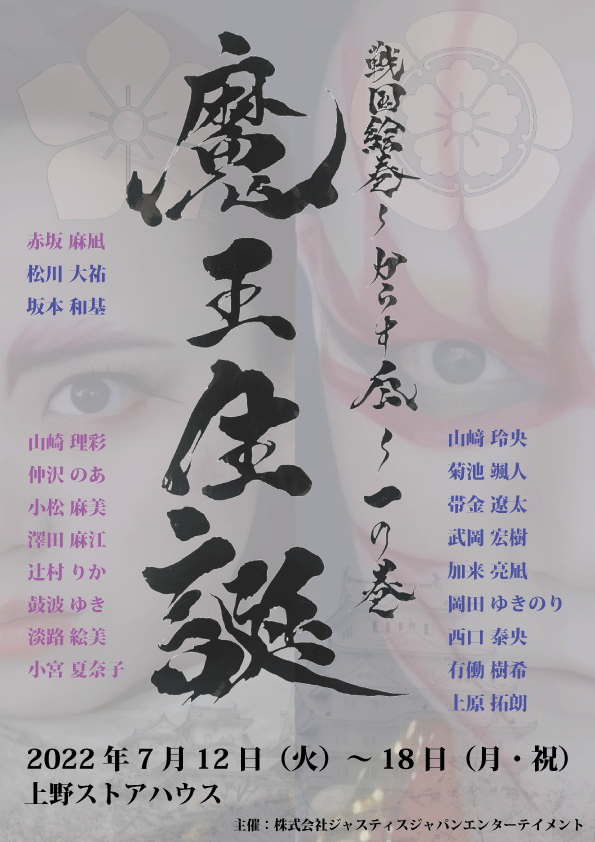 戦国絵巻〜からす凪〜一の巻
魔王生誕
赤坂 麻凪
松川 大祐
坂本 和基
山崎 理彩
仲沢 のあ
小松 麻美
澤田 麻江
辻村 りか
鼓波 ゆき
淡路 絵美
小宮 夏奈子
山﨑 玲央
菊池 颯人
帯金 遼太
武岡 宏樹
加来 亮凪
岡田 ゆきのり
西口 泰央
有働 樹希
上原 拓朗
2022年7月12日（火）～18日（月・祝）
上野ストアハウス
主催：株式会社ジャスティスジャパンエンターテイメント